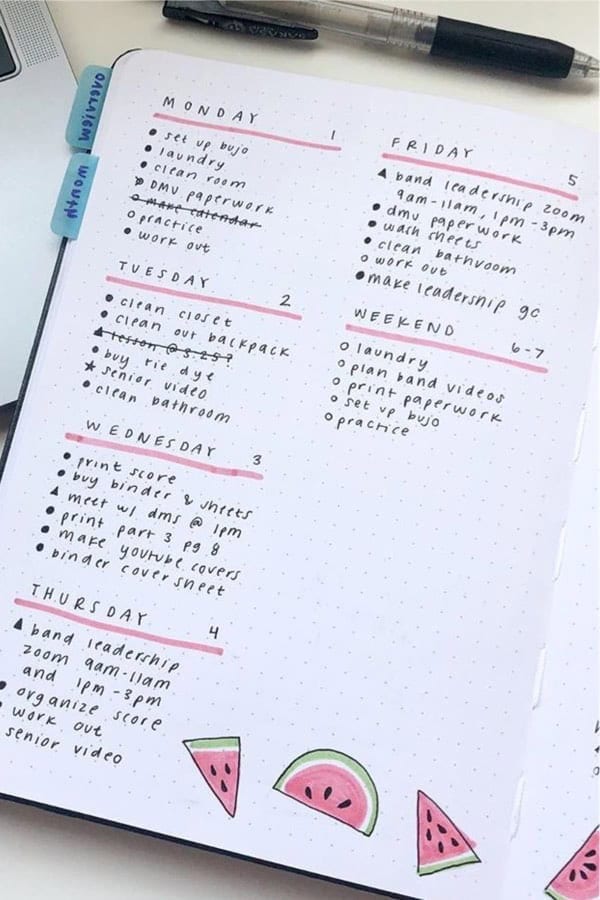 overview
month
MONDAY 1
set up bujo
laundry
clean room
DMV paperwork
make calendar
practice
work out
TUESDAY 2
clean closet
clean out backpack
lesson @ 5:25?
buy tie dye
senior video
clean bathroom
WEDNESDAY 3
print score
buy binder & sheets
meet w/ dms @ 1pm
print part 3 pg 8
make youtube covers
binder cover sheet
THURSDAY 4
band leadership
zoom 9am-11am
and 1pm-3pm
organize score
work out
senior video
FRIDAY 5
band leadership zoom
9am-11am, 1pm-3pm
dmv paperwork
wash sheets
clean bathroom
work out
make leadership gc
WEEKEND 6-7
laundry
plan band videos
print paperwork
set up bujo
practice